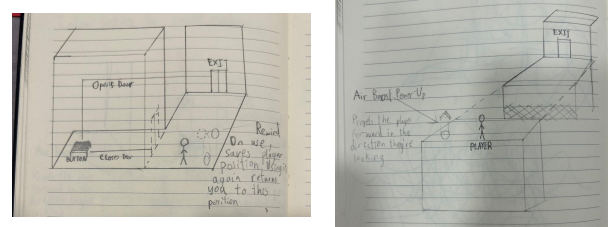 EXIT
Opens Door
BUTTON
Closes Door
Rewind
On use,
saves player
position. Using it
again returns
you to this
position
EXIT
Air Boost Power Up
Propels the player
forward in the
direction they're
looking
PLAYER